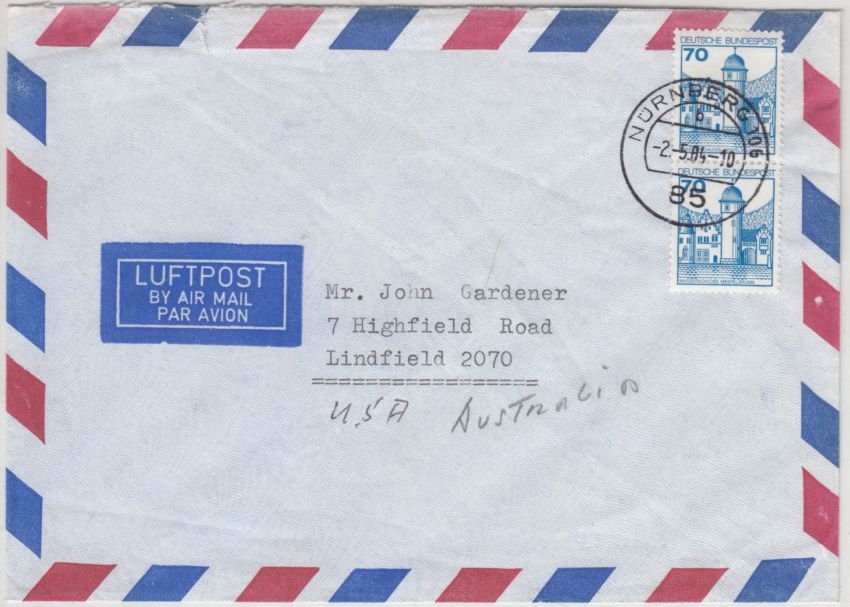 DEUTSCHE BUNDESPOST
70
NÜRNBERG 106
b
-2.-5.84-10
85
DEUTSCHE BUNDESPOST
70
WASSERSCHLOSS MESPELBRUNN
LUFTPOST
BY AIR MAIL
PAR AVION
Mr. John Gardener
7 Highfield Road
Lindfield 2070
=================
U.S.A Australia